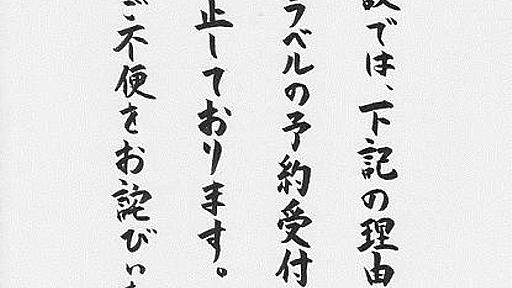 では、下記の理由
ラベルの予約受付
止しております。
ご不便をお詫びい